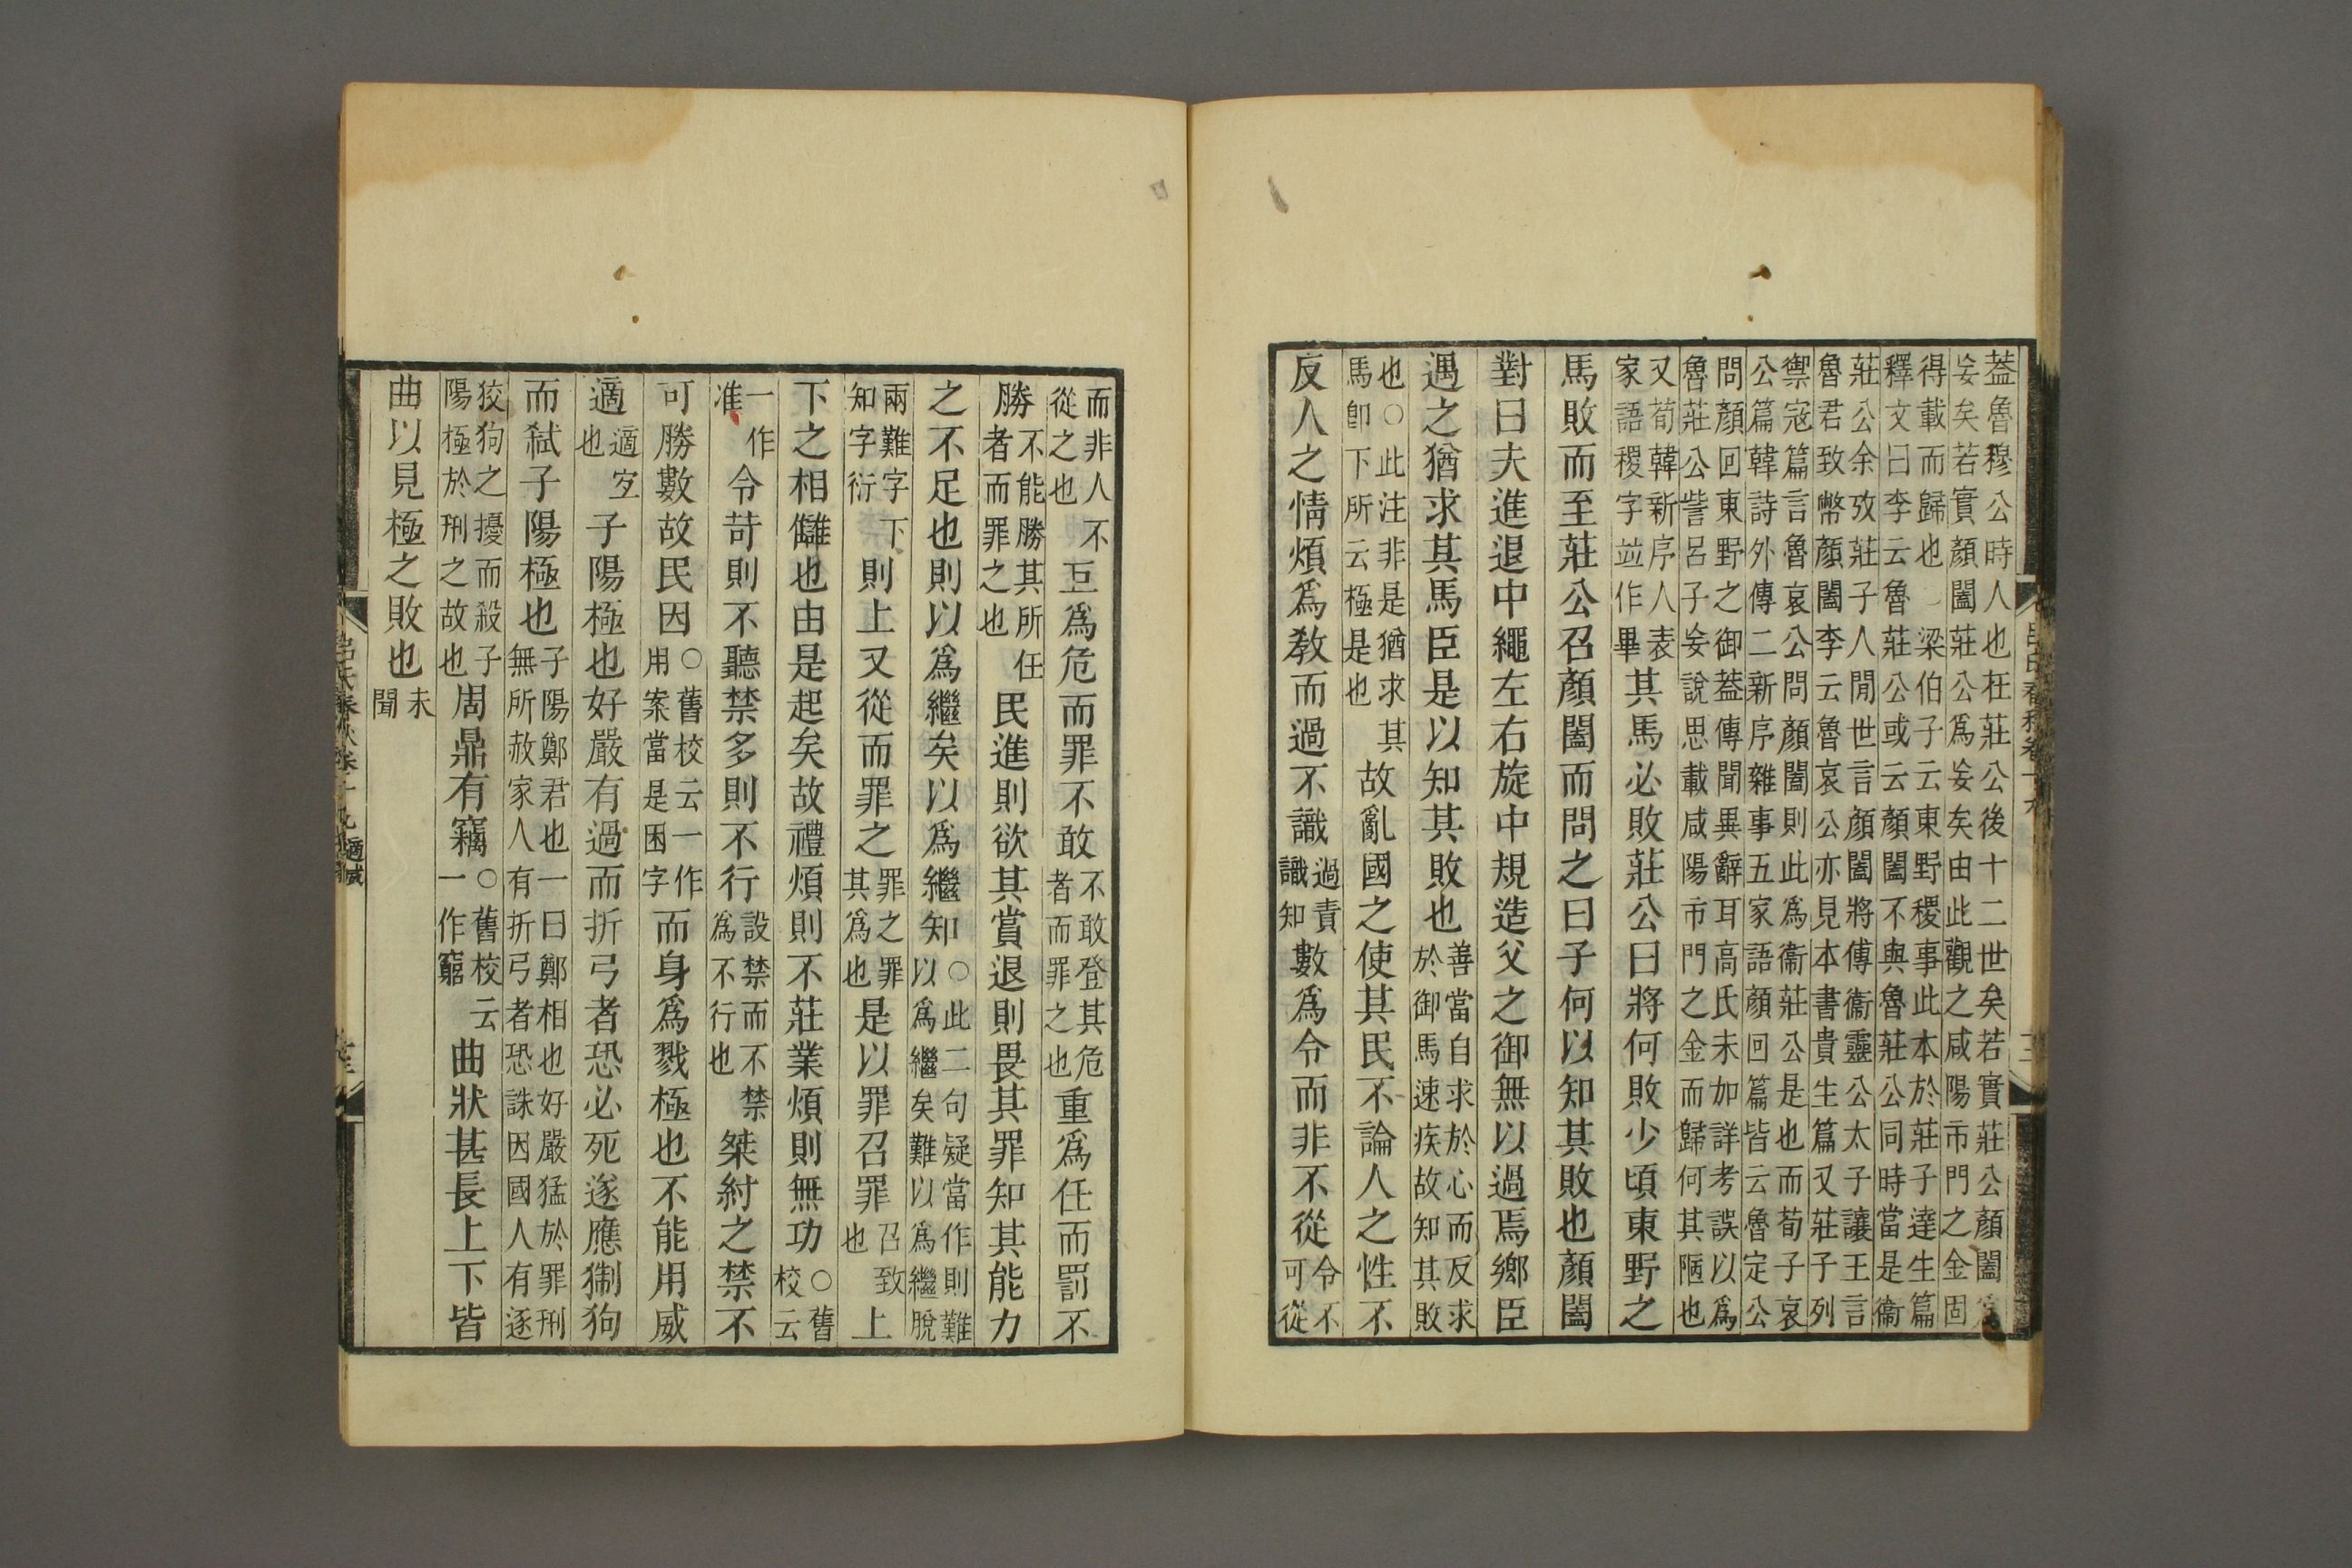 葢魯穆公時人也在莊公後十二世矣若實莊公顏闔爲
妄矣若實顏闔莊公爲妄矣由此觀之咸陽市門之金固
得載而歸也○梁伯子云東野稷事此本於莊子達生篇
釋文曰李云魯莊公或云顏闔不與魯莊公同時當是衞
莊公余攷莊子人閒世言顏闔將傅衞靈公太子讓王言
魯君致幣顏闔李云魯哀公亦見本書貴生篇又莊子列
禦寇篇言魯哀公問顏闔則此爲衞莊公是也而荀子哀
公篇韓詩外傳二新序雜事五家語顏回篇皆云魯定公
問顏回東野之御葢傳聞異辭耳高氏未加詳考誤以爲
魯莊公訾呂子妄說思載咸陽市門之金而歸何其陋也
又荀韓新序人表家語稷字竝作畢其馬必敗莊公曰將何敗少頃東野之
馬敗而至莊公召顏闔而問之曰子何以知其敗也顏闔
對曰夫進退中繩左右旋中規造父之御無以過焉鄉臣
遇之猶求其馬臣是以知其敗也善當自求於心而反求於御馬速疾故知其敗
也○此注非是猶求其馬卽下所云極是也故亂國之使其民不論人之性不
反人之情煩爲敎而過不識過責識知數爲令而非不從令不可從
呂氏春秋卷十九
而非人不從之也亙爲危而罪不敢不敢登其危者而罪之也重爲任而罰不
勝不能勝其所任者而罪之也民進則欲其賞退則畏其罪知其能力
之不足也則以爲繼矣以爲繼知○此二句疑當作則難以爲繼矣難以爲繼脫
兩難字下知字衍則上又從而罪之罪之罪其爲也是以罪召罪召致也上
下之相讎也由是起矣故禮煩則不莊業煩則無功○舊校云
一作准令苛則不聽禁多則不行設禁而不禁爲不行也桀紂之禁不
可勝數故民因○舊校云一作用案當是困字而身爲戮極也不能用威
適適宐也子陽極也好嚴有過而折弓者恐必死遂應猘狗
而弑子陽極也子陽鄭君也一曰鄭相也好嚴猛於罪刑無所赦家人有折弓者恐誅因國人有逐
狡狗之擾而殺子陽極於刑之故也周鼎有竊○舊校云一作窮曲狀甚長上下皆
曲以見極之敗也未聞
呂氏春秋卷十九 適威